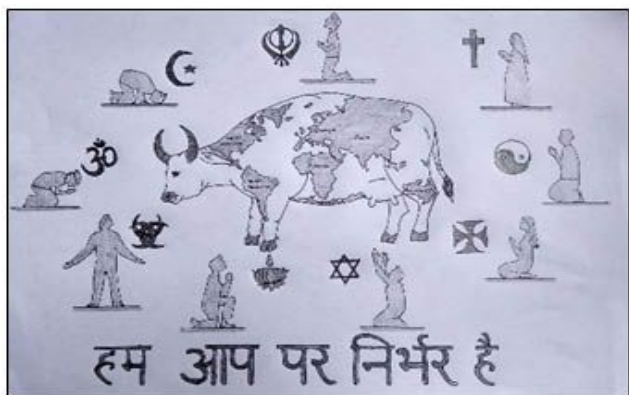 ॐ
हम आप पर निर्भर है